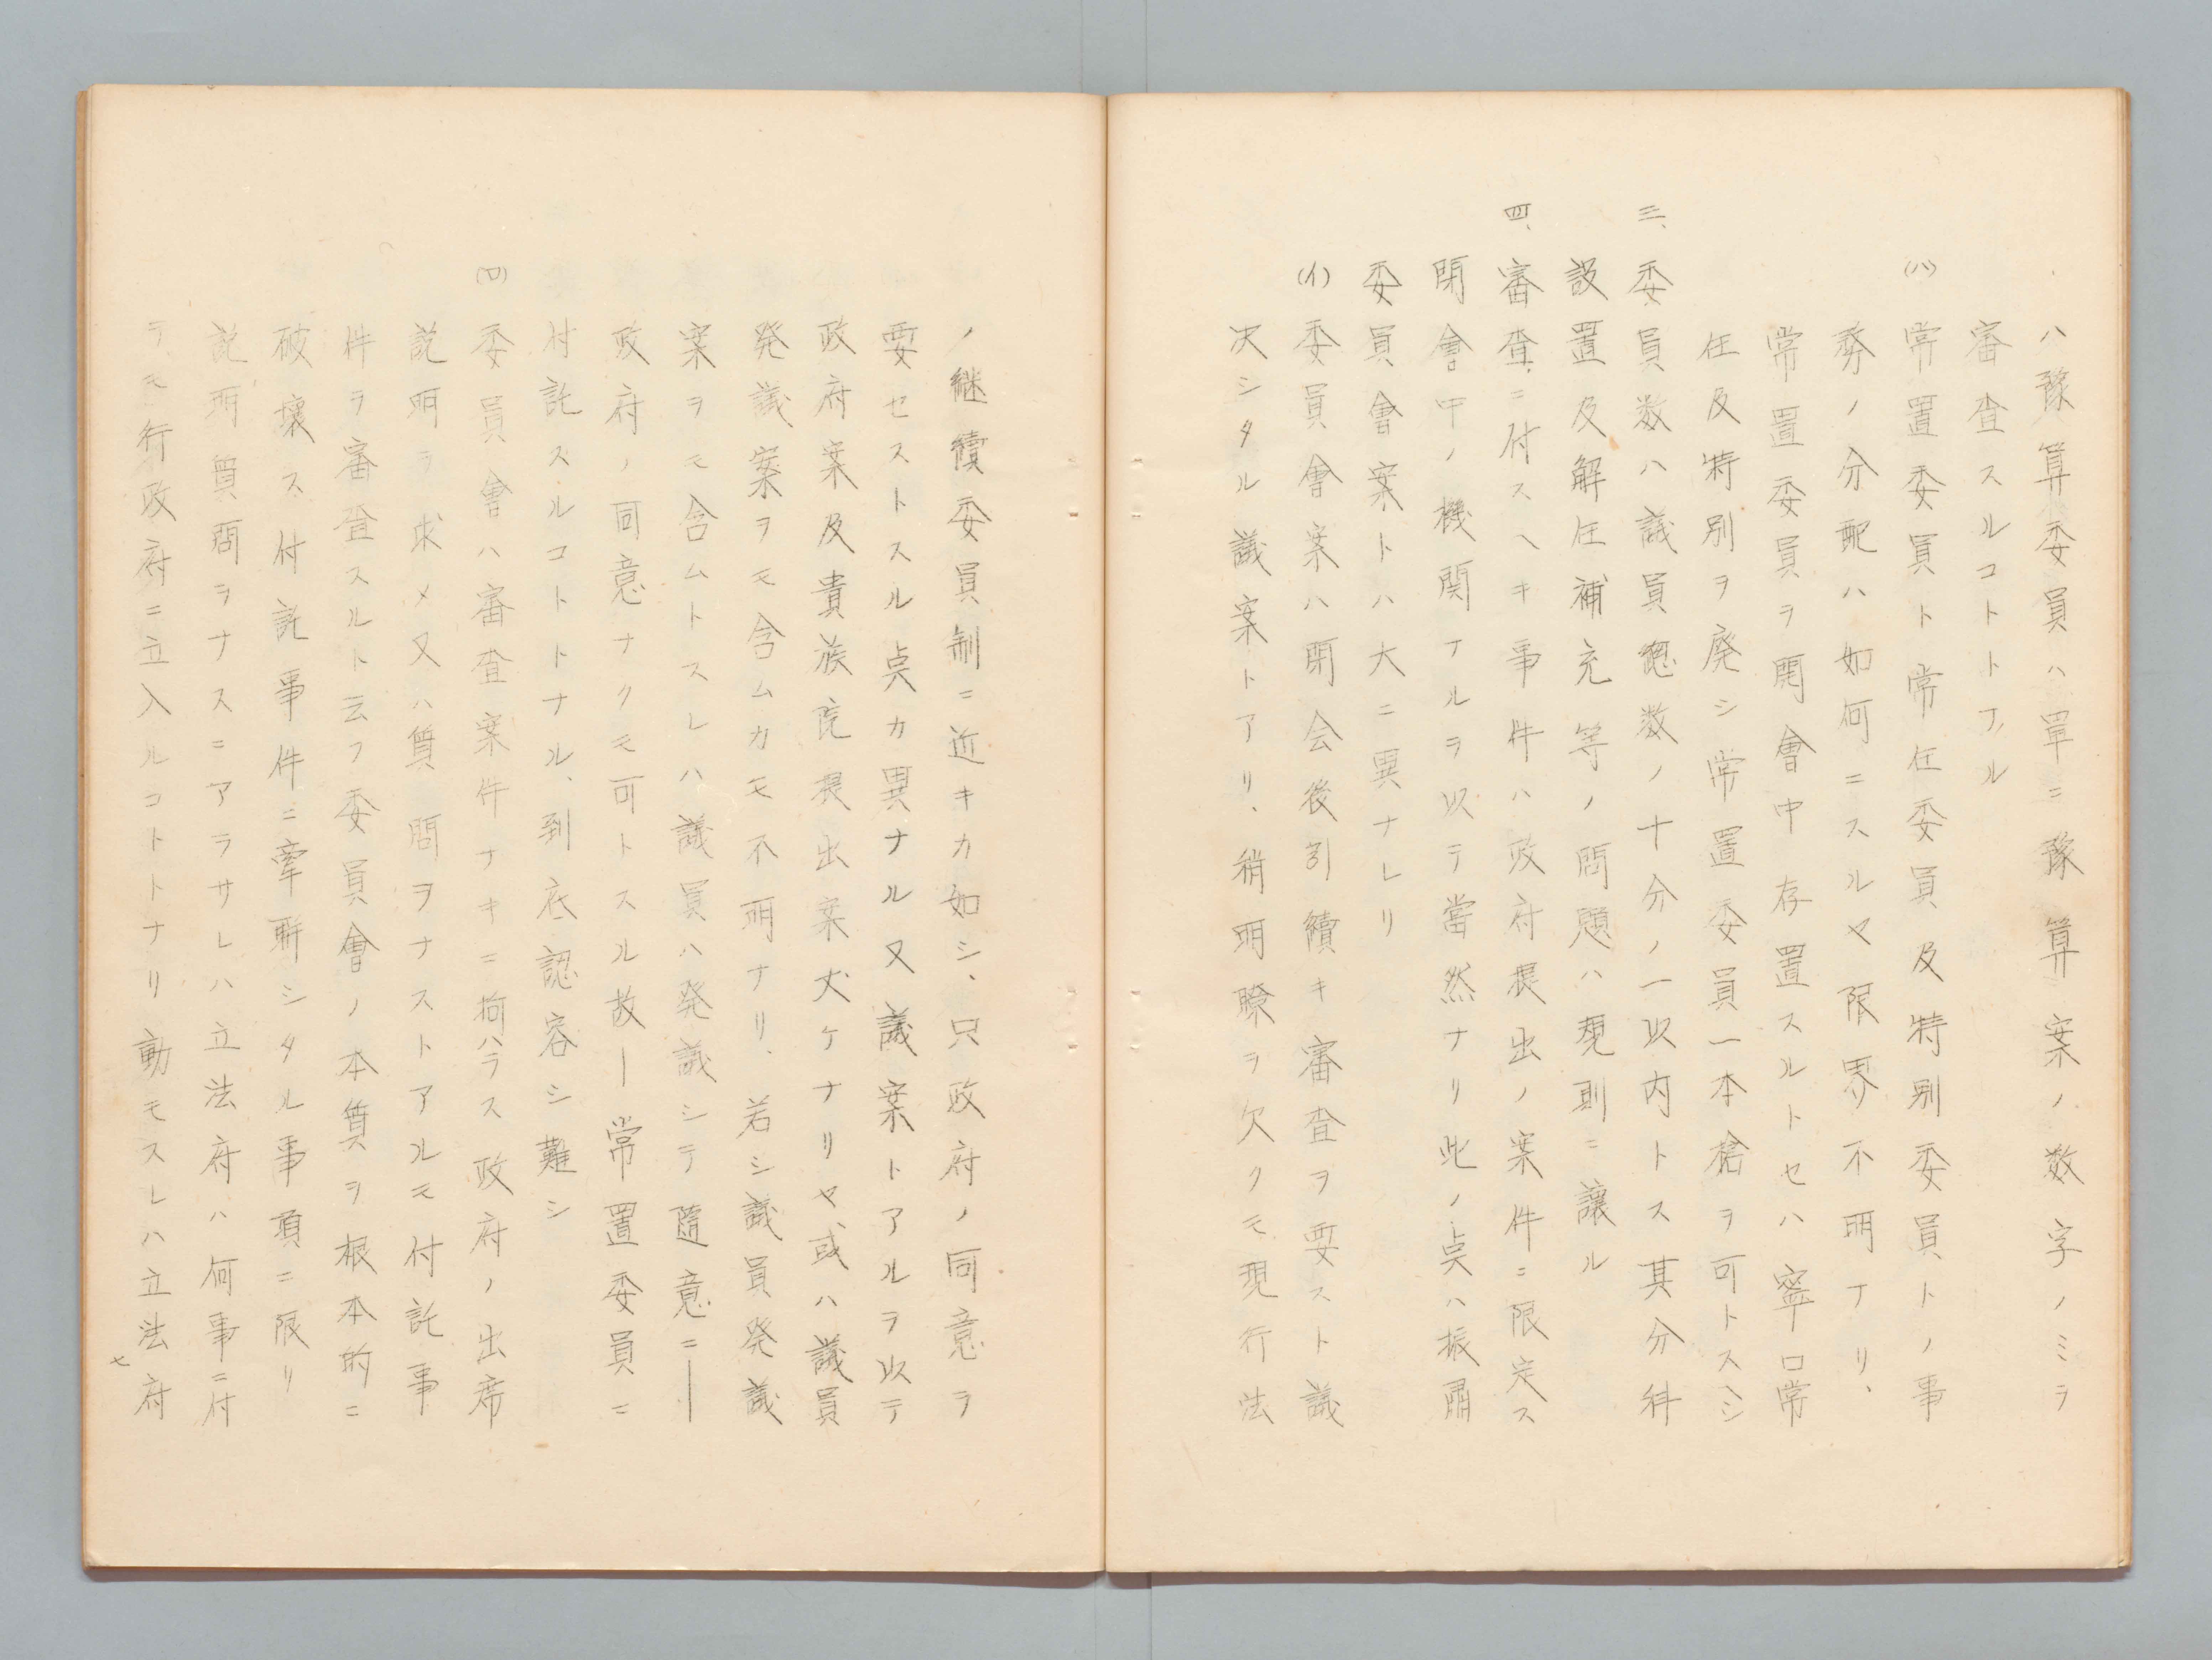 ハ豫算委員ハ単ニ豫算案ノ数字ノミヲ
審査スルコトトナル
(ハ)常置委員ト常任委員及特別委員トノ事
務ノ分配ハ如何ニスルヤ限界不明ナリ、
常置委員ヲ開會中存置スルトセハ寧ロ常
任及特別ヲ廃シ常置委員一本槍ヲ可トスヘシ
三、委員数ハ議員總数ノ十分ノ一以内トス其分科
設置及解任補充等ノ問題ハ規則ニ譲ル
四、審査ニ付スヘキ事件ハ政府提出ノ案件ニ限定ス
閉會中ノ機関ナルヲ以テ當然ナリ此ノ点ハ振肅
委員會案トハ大ニ異ナレリ
(イ)委員會案ハ閉会後引續キ審査ヲ要スト議
決シタル議案トアリ、稍明瞭ヲ欠クモ現行法
ノ継續委員制ニ近キカ如シ、只政府ノ同意ヲ
要セストスル点カ異ナル又議案トアルヲ以テ
政府案及貴族院提出案丈ケナリヤ、或ハ議員
発議案ヲモ含ムカモ不明ナリ、若シ議員発議
案ヲモ含ムトスレハ議員ハ発議シテ隨意ニ―
政府ノ同意ナクモ可トスル故―常置委員ニ
付託スルコトトナル、到底認容シ難シ
(ロ)委員會ハ審査案件ナキニ拘ハラス政府ノ出席
説明ヲ求メ又ハ質問ヲナストアルモ付託事
件ヲ審査スルト云フ委員會ノ本質ヲ根本的ニ
破壊ス付託事件ニ牽聯シタル事項ニ限リ
説明質問ヲナスニアラサレハ立法府ハ何事ニ付
テモ行政府ニ立入ルコトトナリ動モスレハ立法府
七